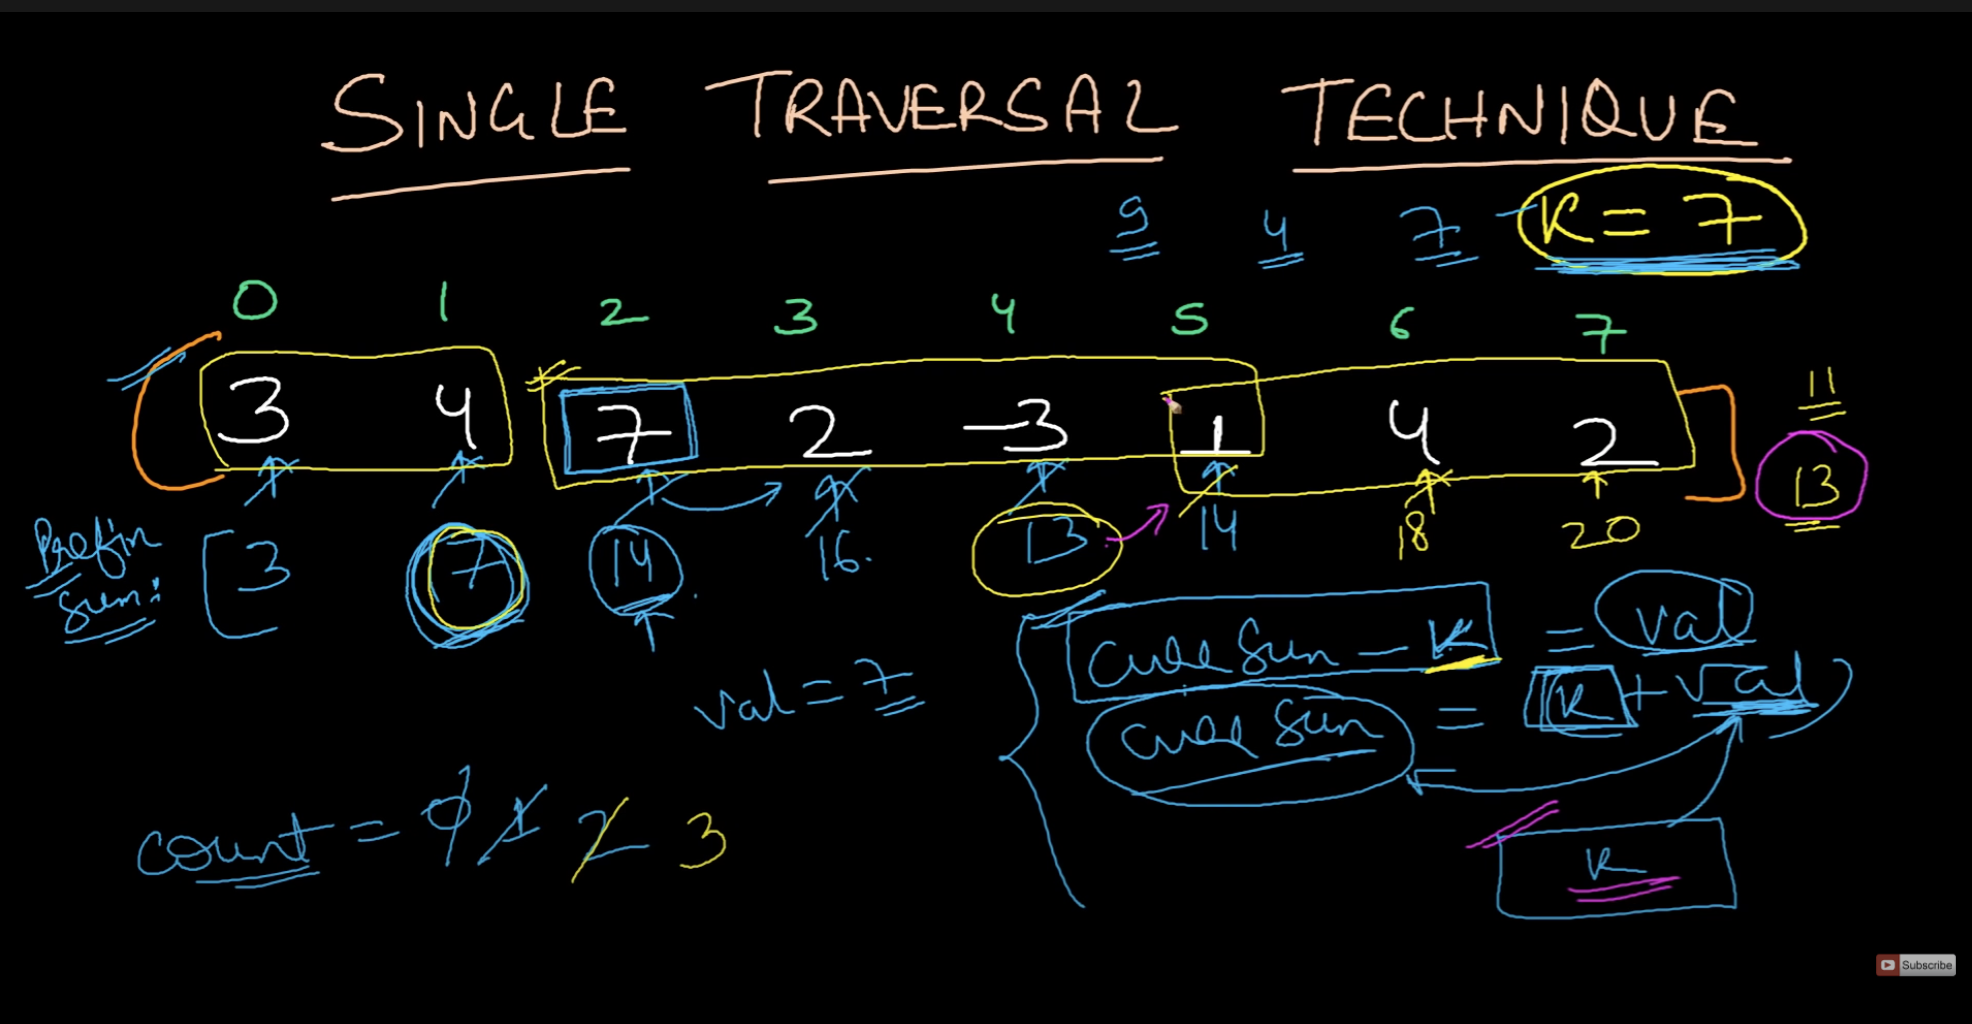 SINGLE TRAVERSAL TECHNIQUE
9 4 7 K = 7
0 1 2 3 4 5 6 7
3 4 7 2 -3 1 4 2
11
13
Prefix Sum: [ 3 7 14 16. 13 14 18 20
curr Sum - K = val
val = 7
curr Sum = K + val
count = 0 1 2 3
K
Subscribe